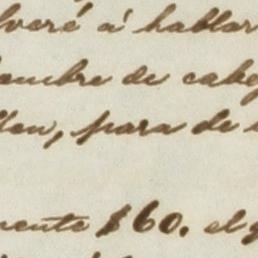 lveré á hablar
ombre de cabe
llen, para de
mente $60. el